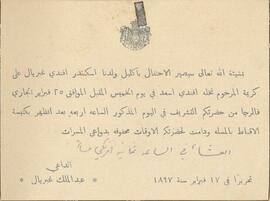 بمشيئة الله تعالى سيصير الاحتفال بأكليل ولدنا اسكندر افندي غبريال على
كريمة المرحوم نخله افندي اسعد في يوم الخميس المقبل الموافق ٢٥ فبراير الجاري
فالرجا من حضرتكم التشريف في اليوم المذكور الساعه اربعه بعد الظهر بكنيسة
الاقباط بالمسله ودامت لحضرتكم الاوقات محفوفة بدواعي المسرات
الساعه
الداعي
تحريرًا في ١٧ فبراير سنة ١٨٩٧ * عبد الملك غبريال *